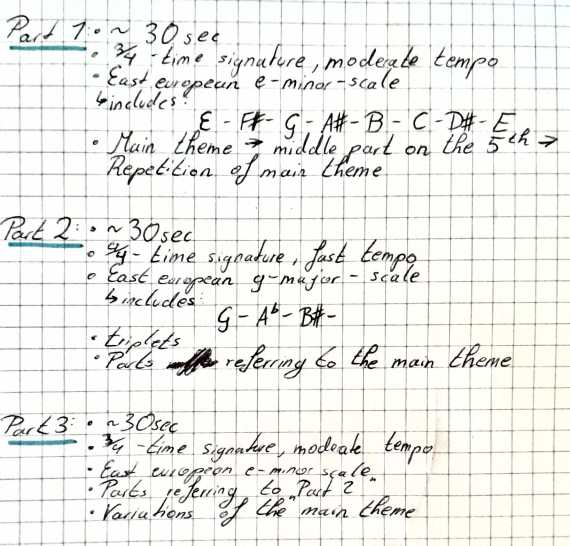 Part 1: • ~ 30 sec
• 3/4 - time signature, moderate tempo
• East european e-minor-scale
↳ includes:
E - F# - G - A# - B - C - D# - E
• Main theme → middle part on the 5th →
Repetition of main theme
Part 2: • ~30sec
• 5/4 - time signature, fast tempo
• East european g-major-scale
↳ includes:
G - Ab - B# -
• triplets
• Parts referring to the main theme
Part 3: • ~30sec
• 3/4 - time signature, moderate tempo
• East european e-minor scale
• Parts referring to „Part 2"
• Variations of the main theme